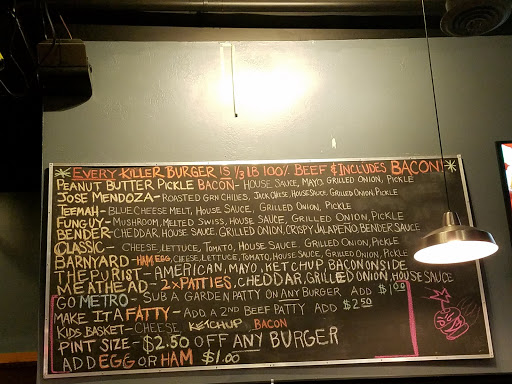 EVERY KILLER BURGER IS 1/3 LB 100% BEEF & INCLUDES BACON!
PEANUT BUTTER PICKLE BACON- HOUSE SAUCE, MAYO, GRILLED ONION, PICKLE
JOSE MENDOZA- ROASTED GRN CHILIES, JACK CHEESE, HOUSE SAUCE, GRILLED ONION, PICKLE
TEEMAH- BLUE CHEESE MELT, HOUSE SAUCE, GRILLED ONION, PICKLE
FUN GUY- MUSHROOM, MELTED SWISS, HOUSE SAUCE, GRILLED ONION, PICKLE
BENDER- CHEDDAR, HOUSE SAUCE, GRILLED ONION, CRISPY JALAPEÑO, BENDER SAUCE
CLASSIC- CHEESE, LETTUCE, TOMATO, HOUSE SAUCE, GRILLED ONION, PICKLE
BARNYARD- HAM, EGG, CHEESE, LETTUCE, TOMATO, HOUSE SAUCE, GRILLED ONION, PICKLE
THE PURIST- AMERICAN, MAYO, KETCHUP, BACON ON SIDE
MEATHEAD- 2X PATTIES, CHEDDAR, GRILLED ONION HOUSE SAUCE
GO METRO- SUB A GARDEN PATTY ON ANY BURGER ADD $1.00
MAKE IT A FATTY- ADD A 2ND BEEF PATTY ADD $2.50
KIDS BASKET- CHEESE KETCHUP BACON
PINT SIZE- $2.50 OFF ANY BURGER
ADD EGG OR HAM $1.00